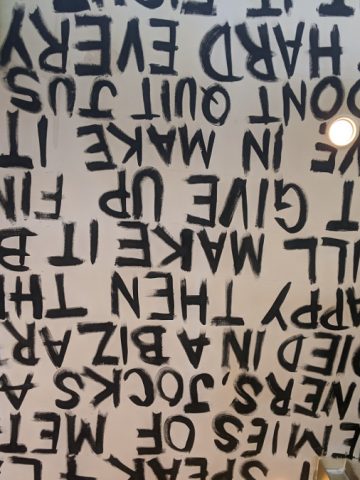 SPEAK
EMIES OF MET
NERS, JOCKS A
DIED IN A BIZAR
APPY THEN TH
ILL MAKE IT B
T GIVE UP FIN
VE IN MAKE IT
DON'T QUIT JUS
HARD EVERY
IT